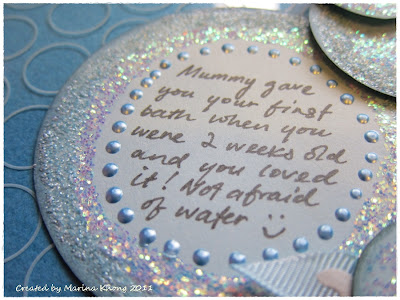 Mummy gave
you your first
bath when you
were 2 weeks old
and you loved
it! Not afraid
of water
Created by Marina Krong 2011